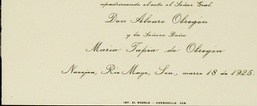 apadrinando el acto el Señor Gral.
Don Alvaro Obregón
y la Señora Doña
María Tapia de Obregón
Navojoa, Río Mayo, Son., marzo 18 de 1925.
IMP. EL MODELO - HERMOSILLO, SON